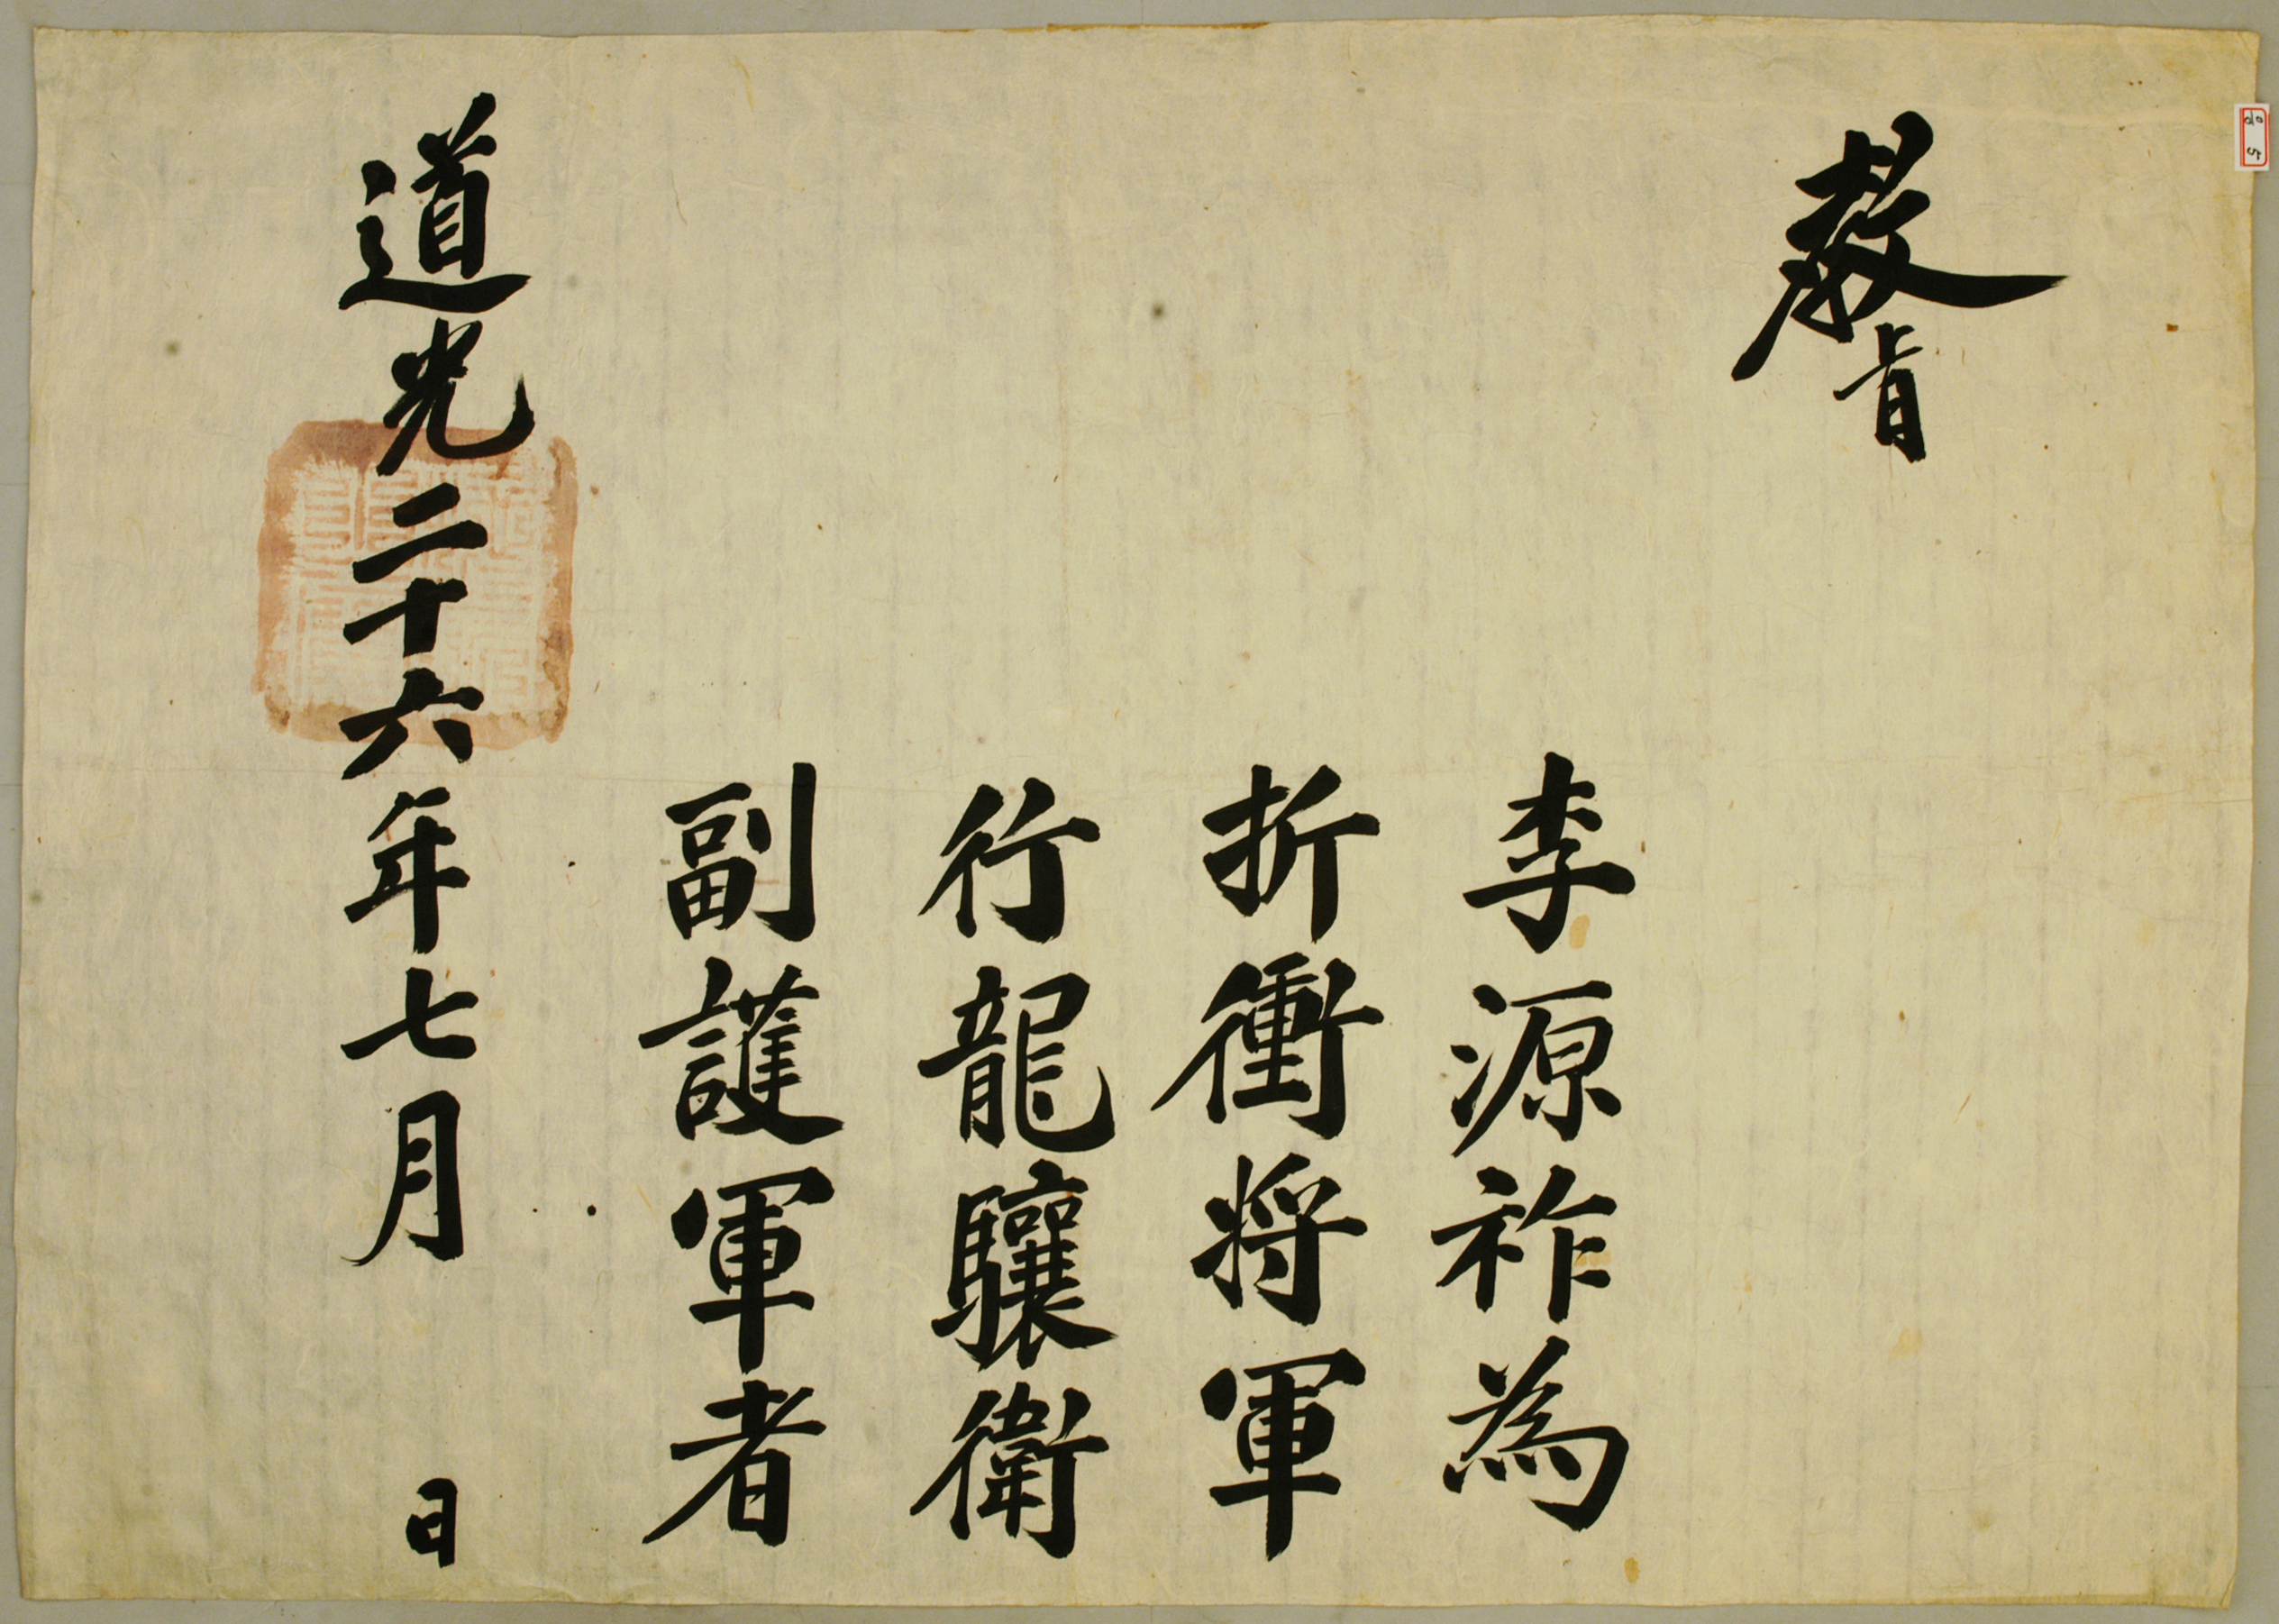 敎旨
李源祚為
折衝将軍
行龍驤衛
副護軍者
道光二十六年七月 日